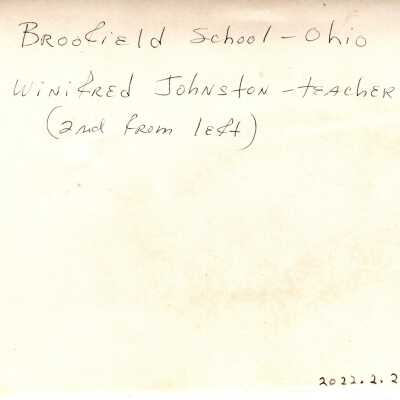 Brookfield School - Ohio
Winifred Johnston - teacher
(2nd from left)
2022.2.2